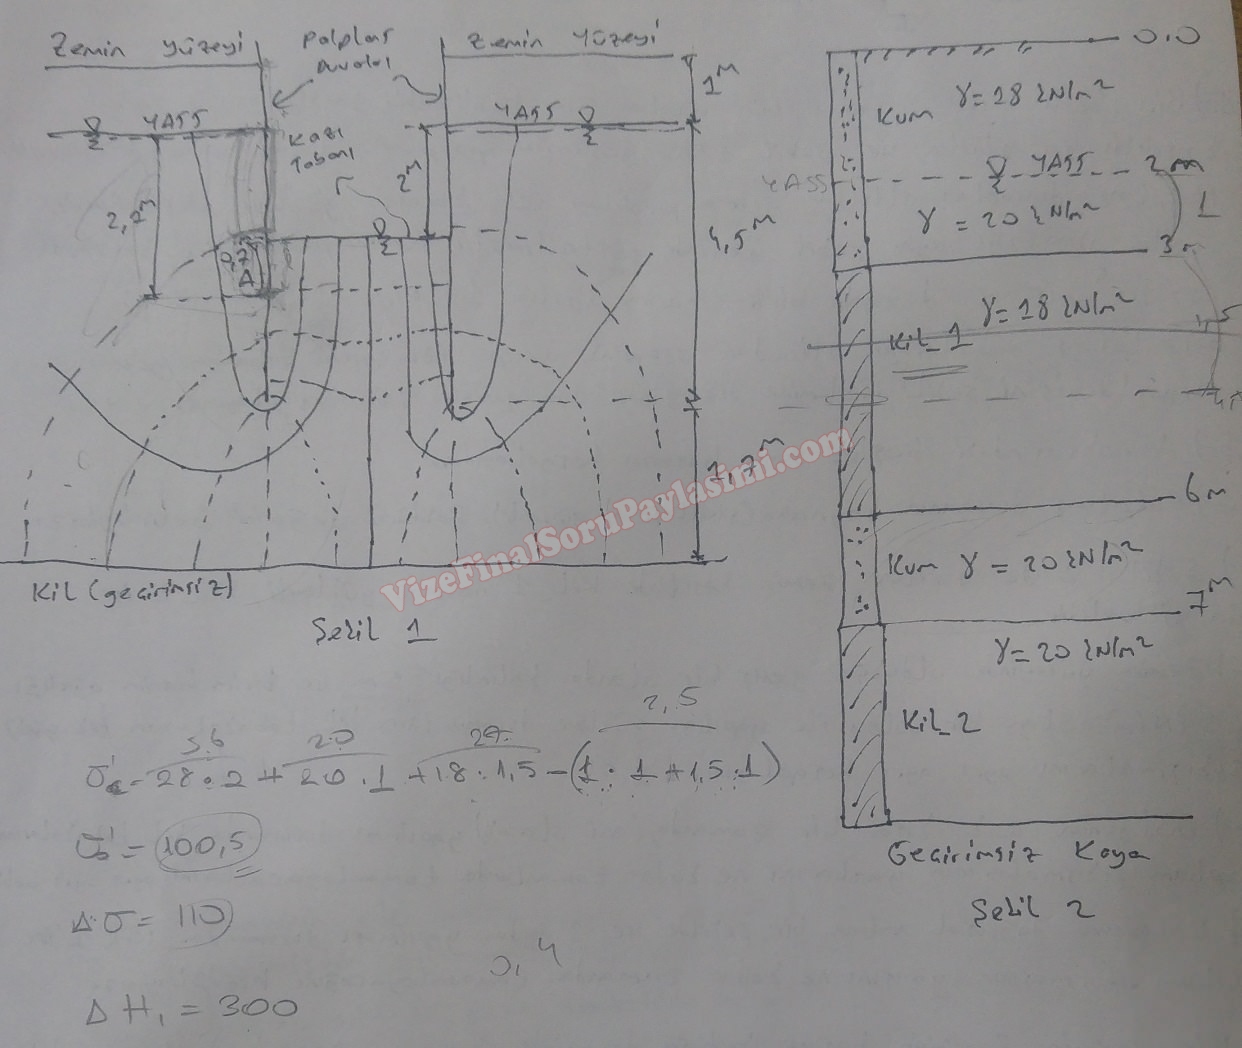 Zemin yüzeyi
Palplanş
duvarları
Zemin Yüzeyi
1m
YASS
YASS
Kazı
Tabanı
2m
2,7m
0,7
A
4,5m
1,7m
Kil (geçirimsiz)
Şekil 1
0,0
Kum γ=28 kN/m²
YASS
YASS
2m
γ = 20 kN/m²
1
3m
γ=18 kN/m²
Kil_1
6m
Kum γ = 20 kN/m²
7m
γ=20 kN/m²
Kil_2
Geçirimsiz Kaya
Şekil 2
VizeFinalSoruPaylasimi.com
56 20 27 2,5
= 28.2 + 20.1 + 18.1,5 - (1.1+1,5.1)
σo' = 100,5
Δσ = 110
0,4
ΔH₁ = 300